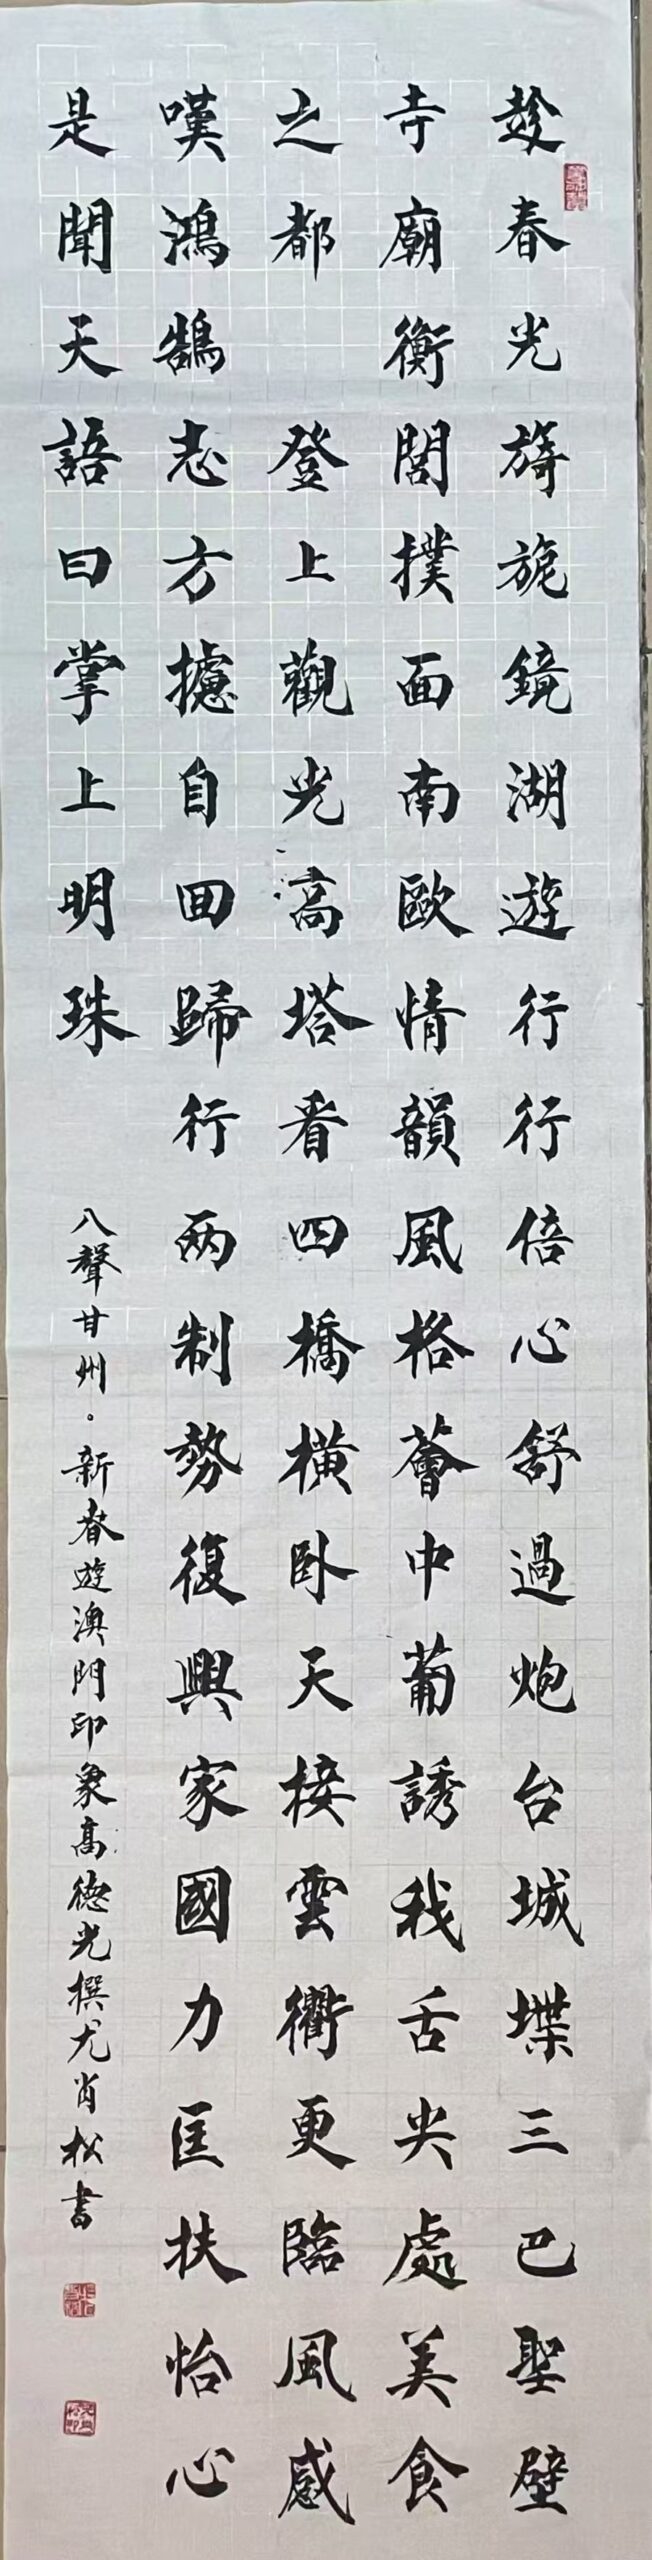 趁春光旖旎鏡湖遊行行倍心舒過炮台城堞三巴聖壁
寺廟衡閭撲面南歐情韻風格薈中葡誘我舌尖處美食
之都 登上觀光高塔看四橋橫卧天接雲衢更臨風感
嘆鴻鵠志方攄自回歸行兩制勢復興家國力匡扶怡心
是聞天語曰掌上明珠
八聲甘州。新春遊澳門印象高德光撰尤肖松書